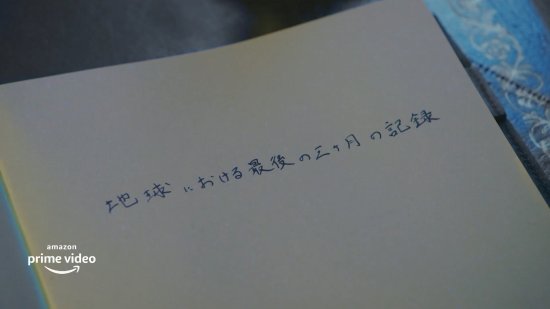 地球における最後の三ヶ月の記録
amazon
prime video